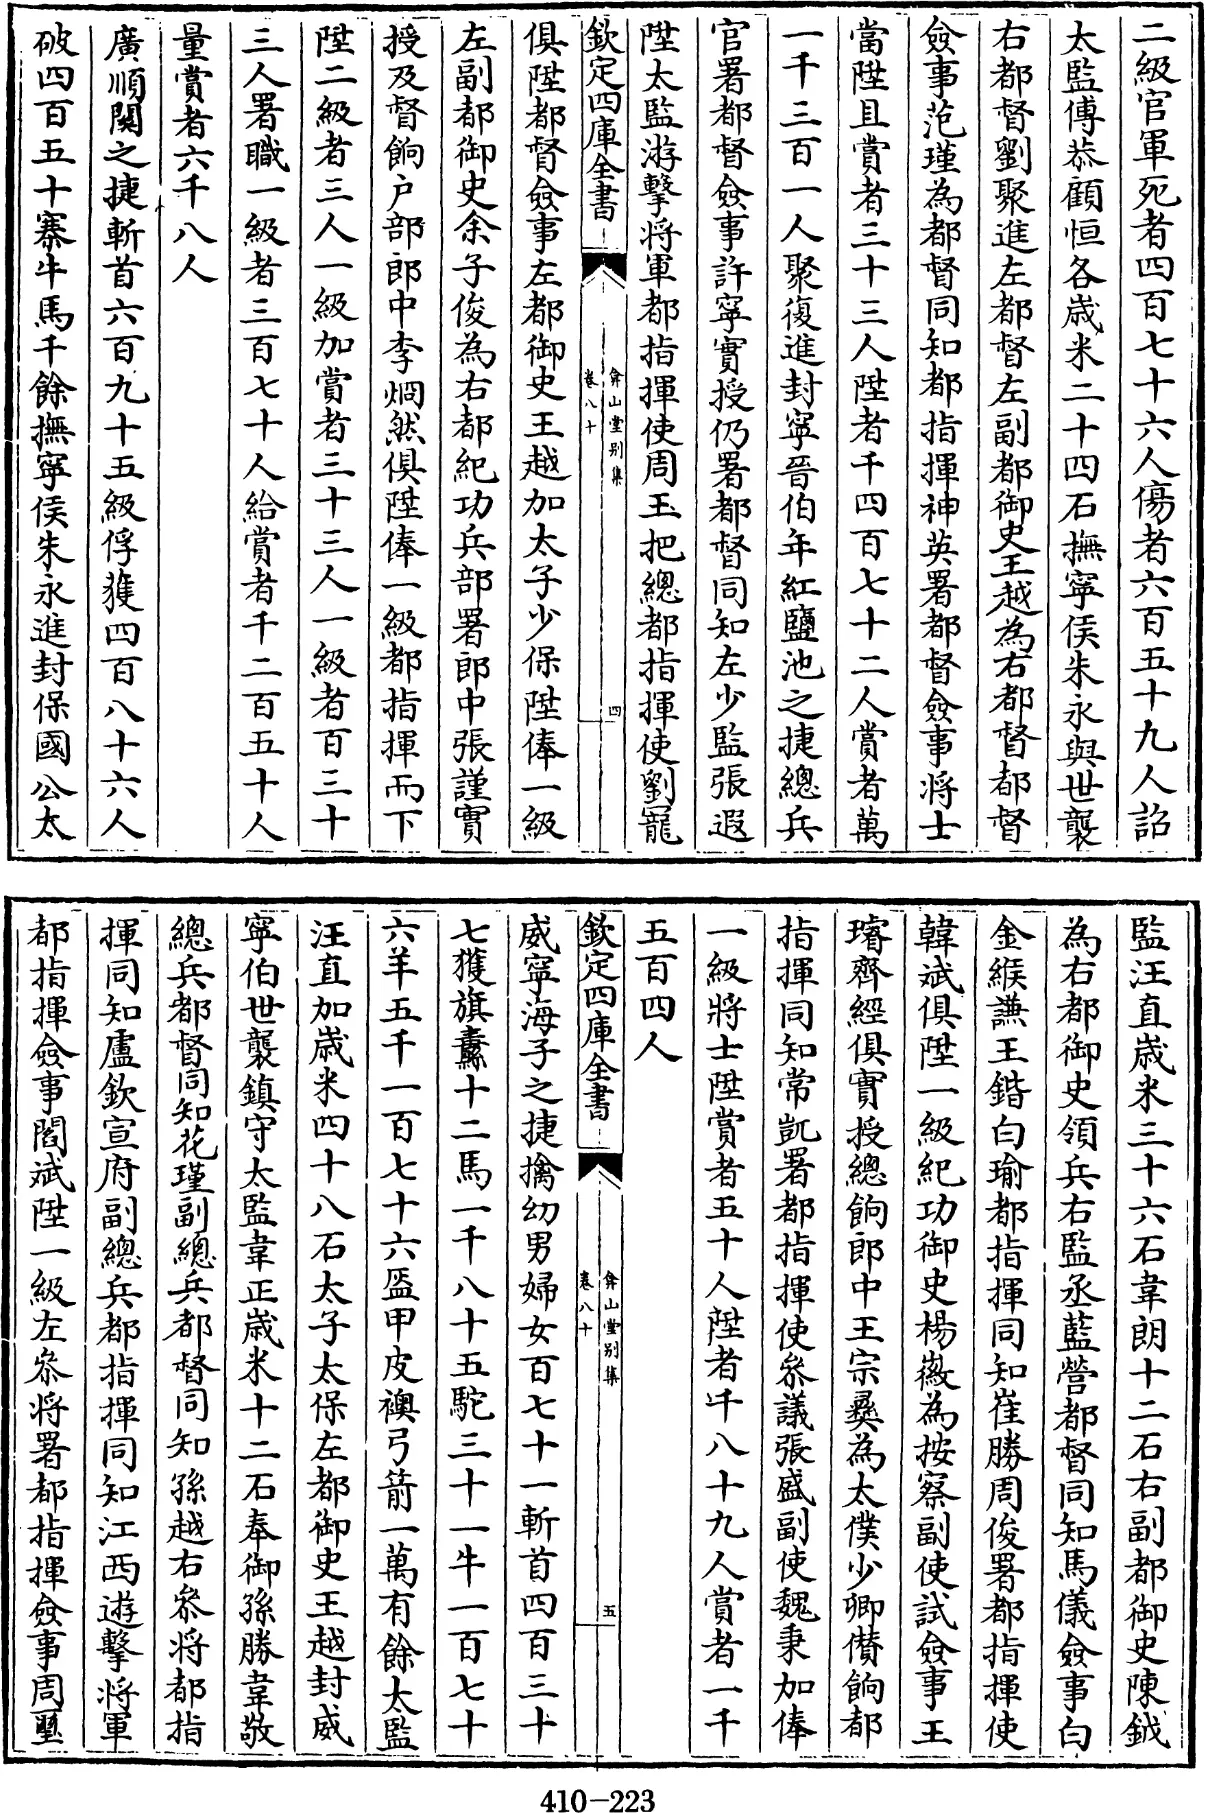 二級官軍死者四百七十六人傷者六百五十九人詔
太監傅恭顧恒各歲米二十四石撫寧侯朱永與世襲
右都督劉聚進左都督左副都御史王越為右都督都督
僉事范瑾為都督同知都指揮神英署都督僉事將士
當陞且賞者三十三人陞者千四百七十二人賞者萬
一千三百一人聚復進封寧晉伯年紅鹽池之捷總兵
官署都督僉事許寧實授仍署都督同知左少監張遐
陞太監游擊將軍都指揮使周玉把總都指揮使劉寵
欽定四庫全書
弇山堂別集
卷八十
四
俱陞都督僉事左都御史王越加太子少保陞俸一級
左副都御史余子俊為右都紀功兵部署郎中張謹實
授及督餉户部郎中李烱然俱陞俸一級都指揮而下
陞二級者三人一級加賞者三十三人一級者百三十
三人署職一級者三百七十人給賞者千二百五十人
量賞者六千八人
廣順關之捷斬首六百九十五級俘獲四百八十六人
破四百五十寨牛馬千餘撫寧侯朱永進封保國公太
監汪直歲米三十六石韋朗十二石右副都御史陳鉞
為右都御史領兵右監丞藍營都督同知馬儀僉事白
金緱謙王鍇白瑜都指揮同知崔勝周俊署都指揮使
韓斌俱陞一級紀功御史楊徽為按察副使試僉事王
璿齊經俱實授總餉郎中王宗彞為太僕少卿儧餉都
指揮同知常凱署都指揮使叅議張盛副使魏秉加俸
一級將士陞賞者五十人陞者千八十九人賞者一千
五百四人
欽定四庫全書
弇山堂別集
卷八十
五
威寧海子之捷擒幼男婦女百七十一斬首四百三十
七獲旗纛十二馬一千八十五駝三十一牛一百七十
六羊五千一百七十六盔甲皮襖弓箭一萬有餘太監
汪直加歲米四十八石太子太保左都御史王越封威
寧伯世襲鎮守太監韋正歲米十二石奉御孫勝韋敬
總兵都督同知花瑾副總兵都督同知孫越右叅將都指
揮同知盧欽宣府副總兵都指揮同知江西遊擊將軍
都指揮僉事閻斌陞一級左叅將署都指揮僉事周璽
410-223